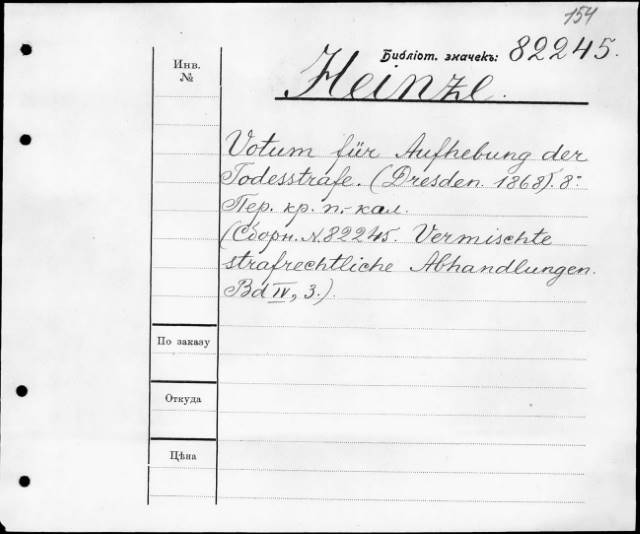 154
Библіот. значекъ: 82245.
Инв.
№
Heinze.
Votum für Aufhebung der
Todesstrafe. (Dresden. 1868). 8º
Пер. кр. п.-кал.
(Сборн. N. 82245. Vermischte
strafrechtliche Abhandlungen.
Bd IV, 3.)
По заказу
Откуда
Цѣна